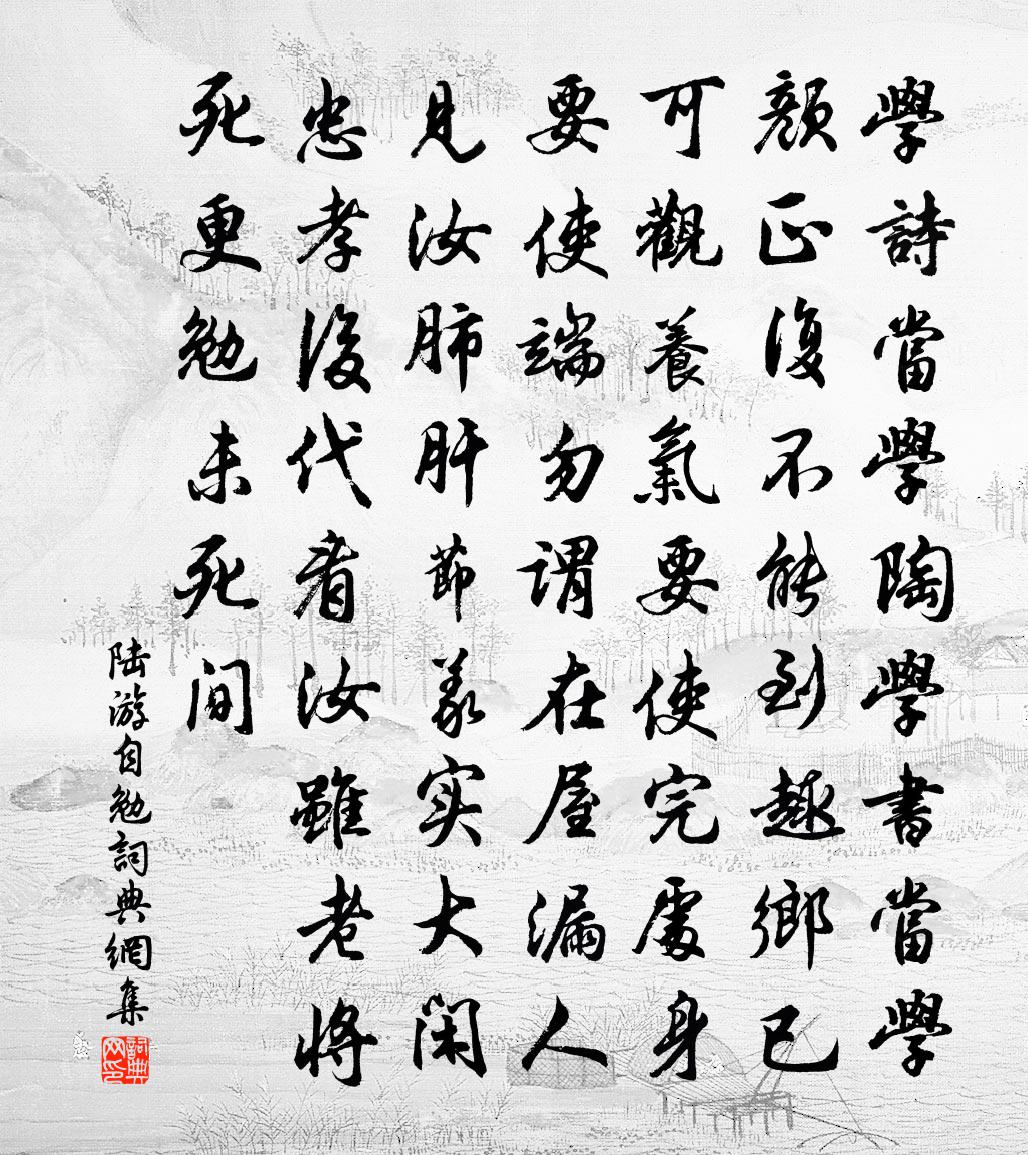 學詩當學陶學書當學
顏正復不能到趣鄉已
可觀養氣要使完處身
要使端勿謂在屋漏人
見汝肺肝節義实大閑
忠孝後代看汝雖老将
死更勉未死間
陆游自勉詞典網集
詞典网印